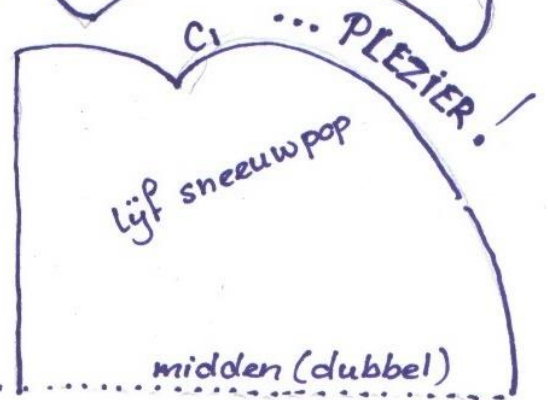 ... PLEZIER!
C1
lijf sneeuwpop
midden (dubbel)